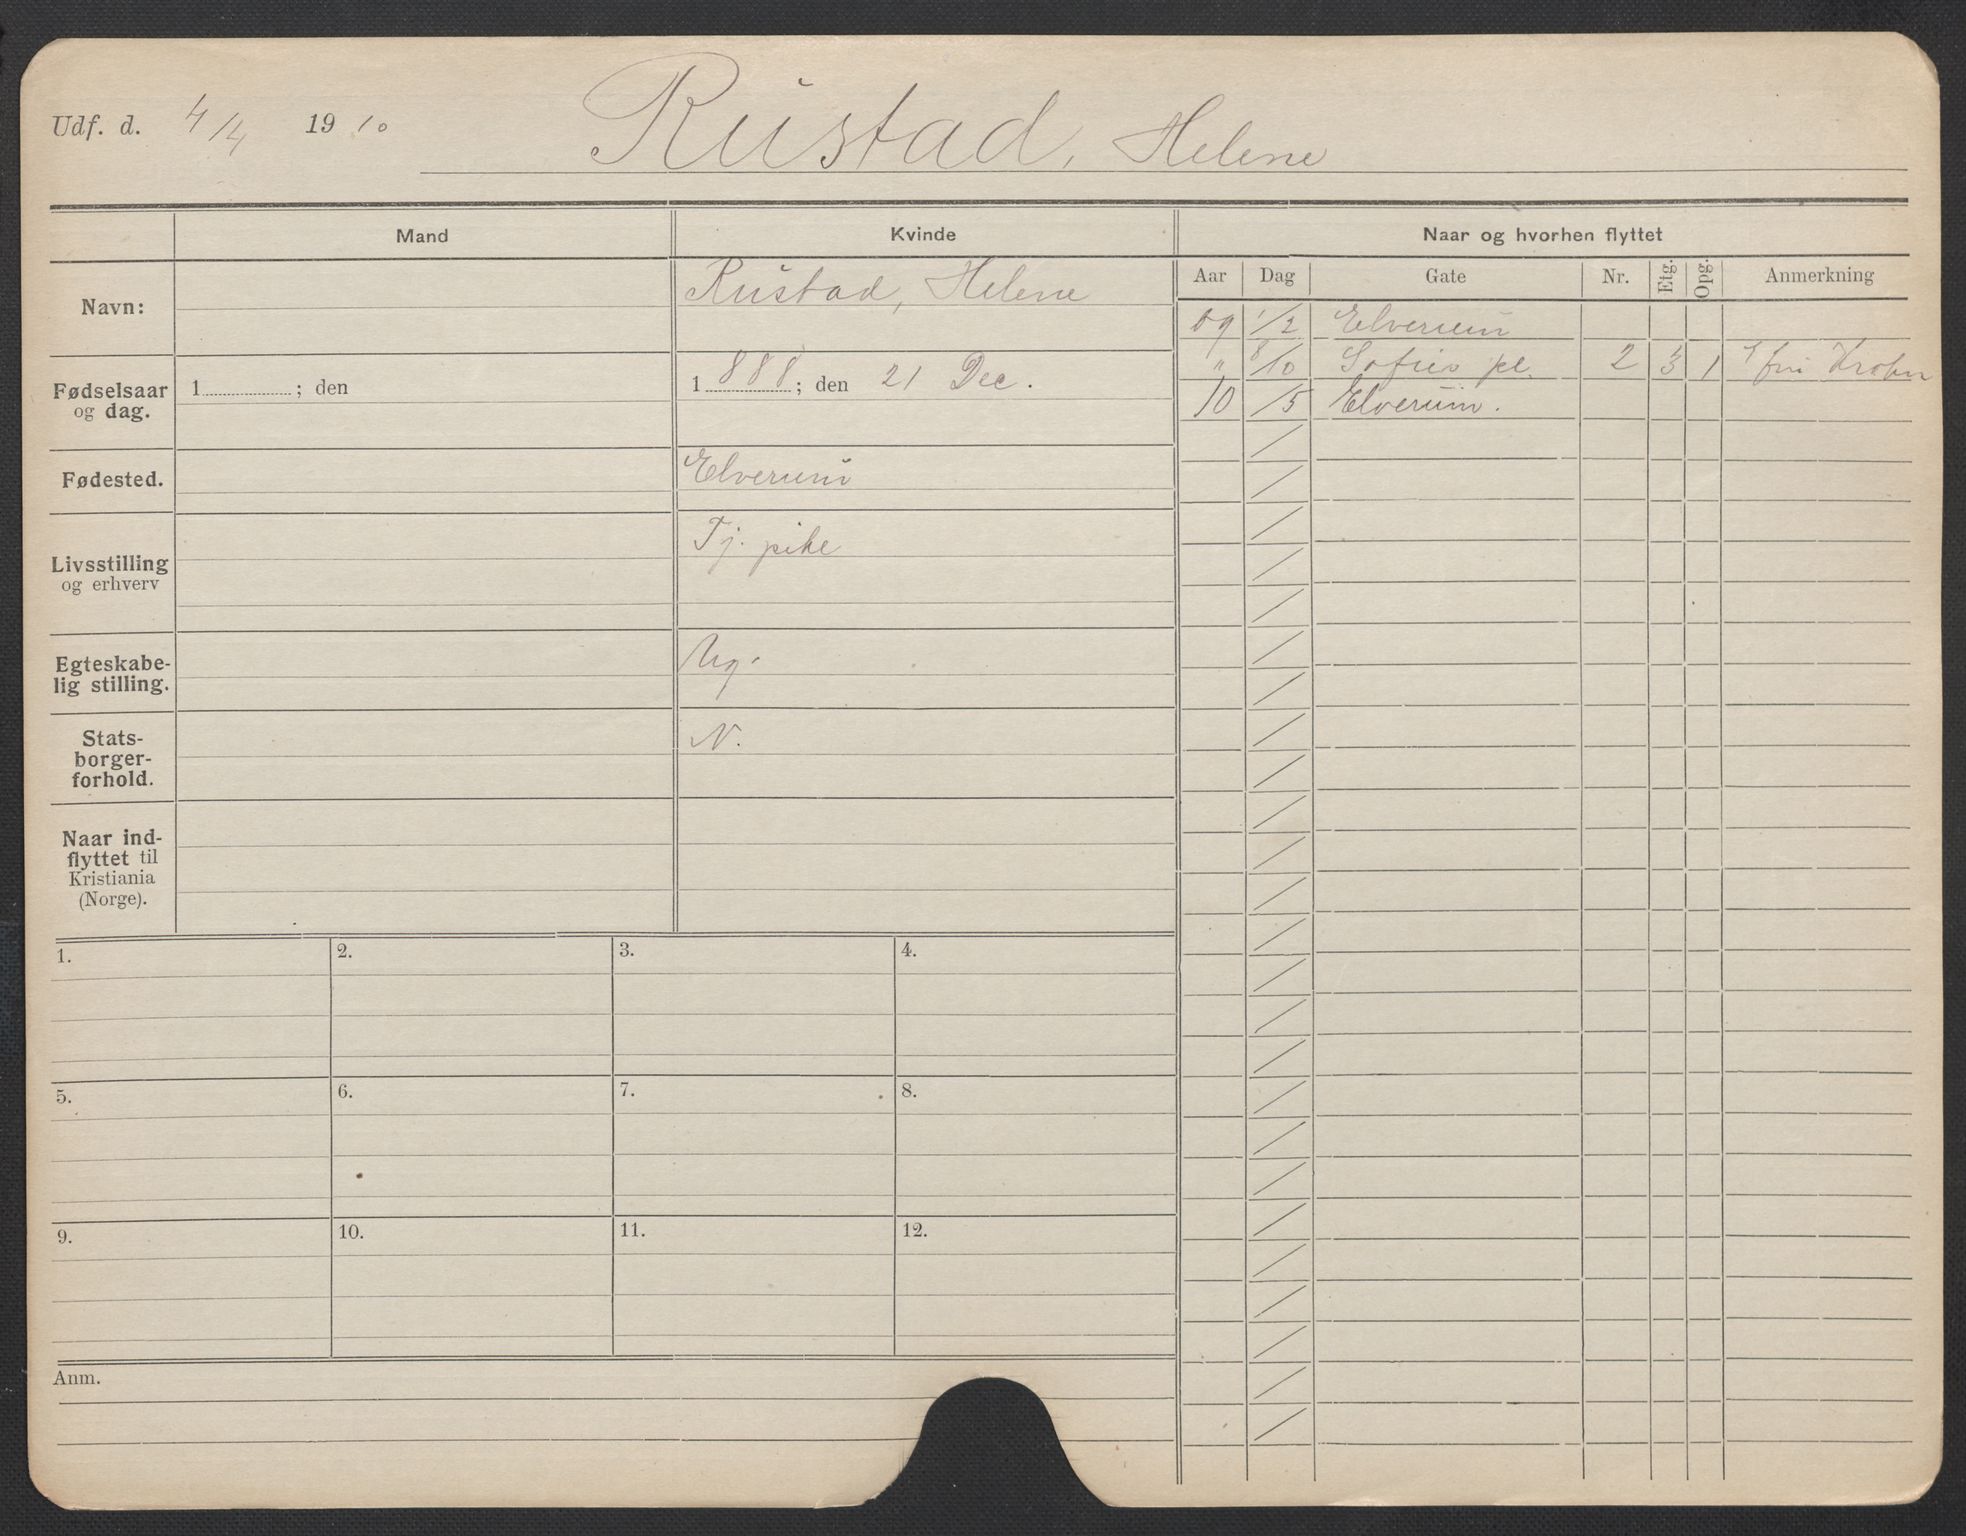 Udf. d. 4/4 1910 Rustad, Helene
Mand Kvinde Naar og hvorhen flyttet
Aar Dag Gate Nr. Etg. Opg. Anmerkning
Navn: Rustad, Helene
09 1/2 Elverum
" 8/10 Sofies pl. 2 3 1 fru Krohn
10 /5 Elverum.
Fødselsaar
og dag.
1 ; den 1888; den 21 Dec.
Fødested. Elverum
Livsstilling
og erhverv
Tj. pike
Egteskabe-
lig stilling.
Ug.
Stats-
borger-
forhold.
N.
Naar ind-
flyttet til
Kristiania
(Norge).
1. 2. 3. 4.
5. 6. 7. 8.
9. 10. 11. 12.
Anm.